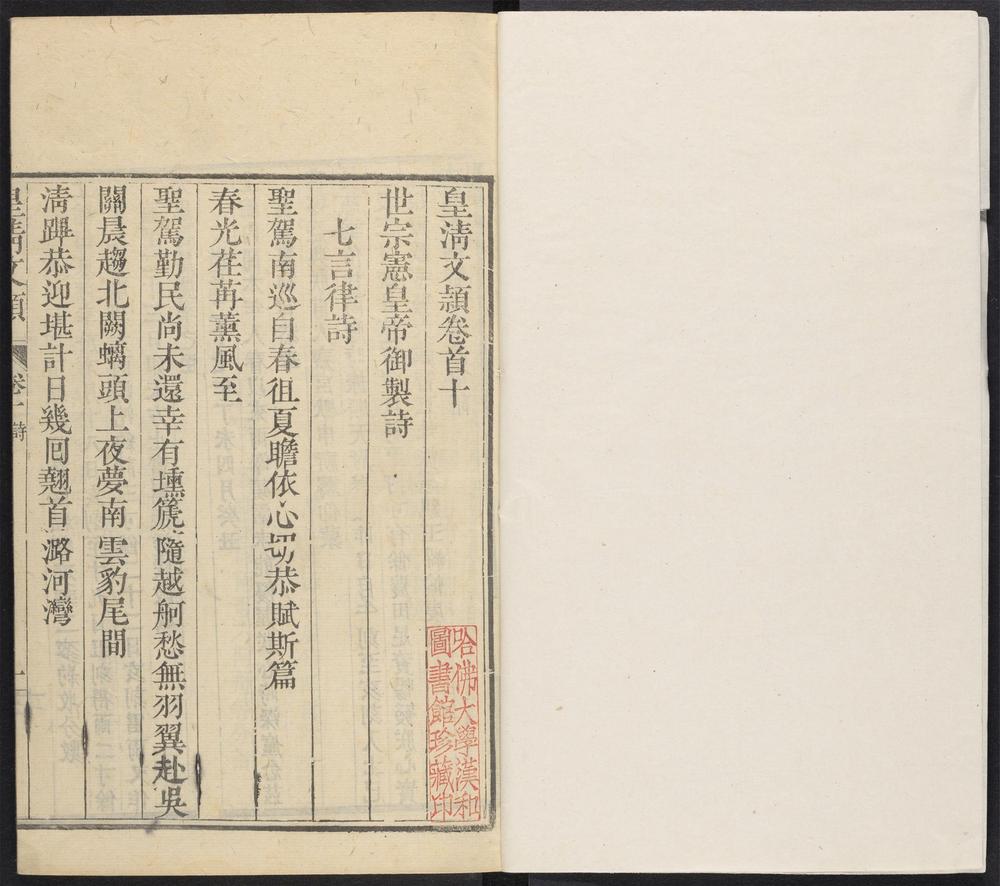 皇清文穎卷首十
世宗憲皇帝御製詩
七言律詩
聖駕南巡自春徂夏瞻依心切恭賦斯篇
春光荏苒薰風至
聖駕勤民尚未還幸有壎篪隨越舸愁無羽翼赴吳
關晨趨北闕螭頭上夜夢南雲豹尾間
清蹕恭迎堪計日幾囘翹首潞河灣
皇清文穎 卷十 詩 一
哈佛大學漢和
圖書館珍藏印